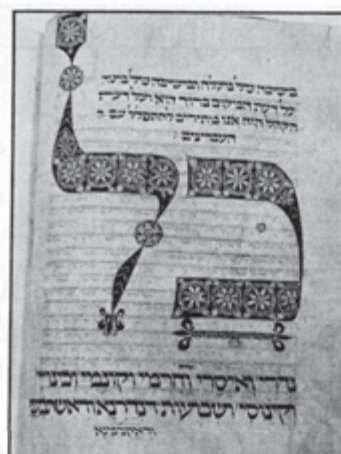 בישיבה של מעלה ובישיבה של מטה
על דעת המקום ברוך הוא ועל דעת
הקהל הזה אנו מתירים להתפלל עם
העבריינים
כל
נדרי ואיסרי וחרמי וקונמי וכינויי
וקנוסי ושבועות דנדרנא